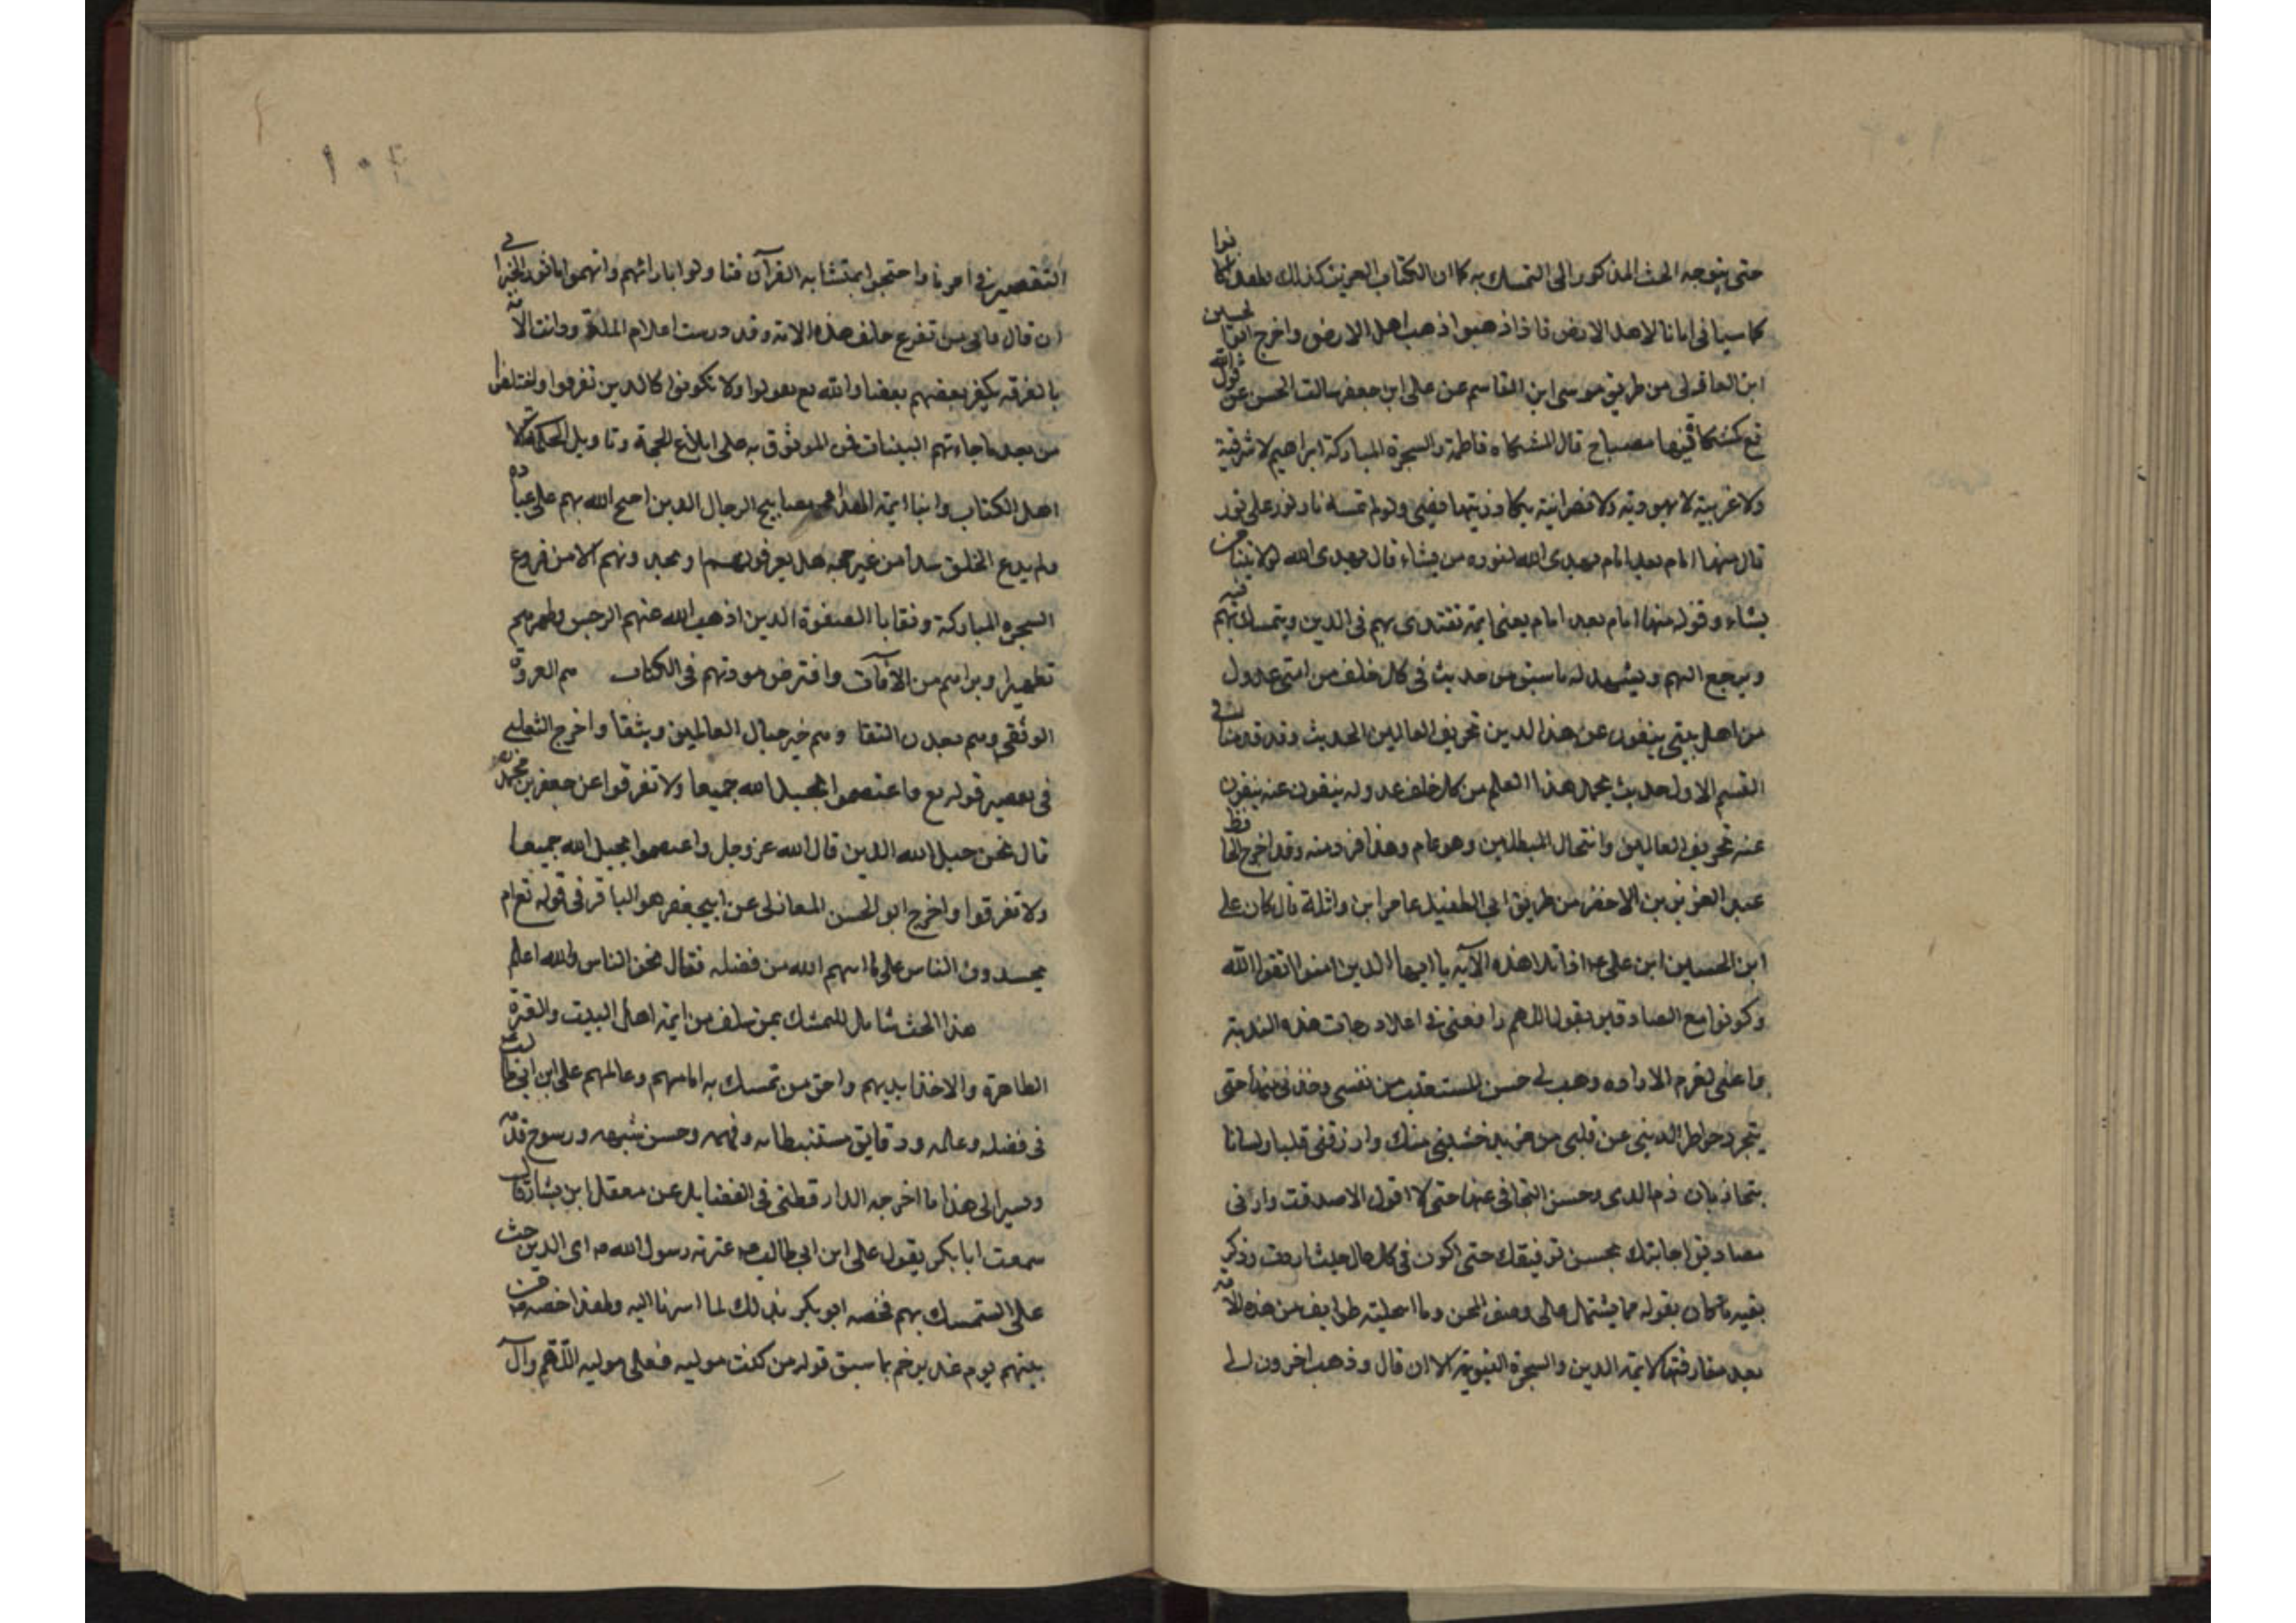 حتى يتوجه الحث المذكور الى التمسك به كما ان الكتاب العزيز كذلك ولهذا كانوا
كما سياتى امانا لاهل الارض فاذا ذهبوا ذهب اهل الارض واخرج ابو الحسين
ابن المغازلى من طريق موسى ابن القاسم عن على ابن جعفر سالت الحسن عن قول الله
تع كمشكاة فيها مصباح قال المشكاه فاطمة والسجرة المباركة ابراهيم لا شرقية
ولا غربية لا يهودية ولا نصرانية يكاد زيتها يضيى ولو لم تمسه نار نور على نور
قال منها امام بعد امام يهدى الله لنوره من يشاء قال يهدى الله لولايتنا من
يشاء وقوله منها امام بعد امام يعنى ايمة تقتدى بهم فى الدين ويتمسك بهم فيه
ويرجع اليهم ويشهد له ما سبق من حديث فى كل خلف من امتى عدول
من اهل بيتى ينفون عن هذا الدين تحريف الغالين الحديث وقد قدمنا فى
القسم الاول حديث يحمل هذا العلم من كل خلف عدوله ينفون عنه ينفون
عنه تحريف الغالين وانتحال المبطلين وهو عام وهذا فرد منه وقد اخرج الحافظ
عبد العزيز بن الاخضر من طريق ابي الطفيل عامر ابن واثلة قال كان على
ابن الحسين ابن على ع اذا تلا هذه الآية يا ايها الدين امنوا اتقوا الله
وكونوا مع الصادقين يقول اللهم ارفعنى فى اعلا درجات هذه الندبة
واعنى لعزم الاراده وهب لى حسن المستعقب من نفسى وخذنى منها حتى
يتجرد خواطر الدينى عن قلبى من خشيتى منك وارزقنى قلبا ولسانا
يتجاريان ذم الدى وحسن التجافى عنها حتى لا اقول الا صدقت وارنى
مصاديق اجابتك بحسن توفيقك حتى اكون فى كل حال حيث اردت وذكر
بقيه ما كان يقوله مما يشتمل على وصف المحن وما اسحلته طوايف من هذه الامة
بعد مفارقتها لايمة الدين والسجرة النبوية الا ان قال وذهب اخرون الى
١٠٤
التقصير فى امرنا واحتجوا بمتشابه القرآن فتاولوا بارائهم واتهموا ماثور الخبر الى
ان قال فالى من تفزع خلف هذه الامة وقد درست اعلام الملة ودانت الامة
بالفرقة يكفر بعضهم بعضا والله تع يقول ولا تكونوا كالدين تفرقوا واختلفوا
من بعد ما جاءتهم البينات فمن الموثوق به على ابلاغ الحجة وتاويل الحكمة الا
اهل الكتاب وابنا ايمة الهدا ومصابيح الرجال الدين احتج الله بهم على عباده
ولم يدع الخلق سدا من غير حجه هل يعرفونهم او تجدونهم الا من فروع
السجره المباركة وبقايا الصفوة الدين اذهب الله عنهم الرجس وطهرهم
تطهيرا وبراهم من الآفات وافترض مودتهم فى الكتاب هم العروة
الوثقى وهم معدن التقا وهم خير حبال العالمين ويثقا واخرج الثعلبى
فى تفسير قوله تع واعتصموا بحبل الله جميعا ولا تفرقوا عن جعفر بن محمد
قال نحن حبل الله الدين قال الله عز وجل واعتصموا بحبل الله جميعا
ولا تفرقوا واخرج ابو الحسن المغازلى عن ابي جعفر هو الباقر فى قوله تع ام
يحسدون الناس على ما اتهم الله من فضله فقال نحن الناس والله اعلم
هذا الحث شامل للتمسك بمن سلف من ايمة اهل البيت والعترة
الطاهرة والاخذ بهديهم واحق من تمسك به امامهم وعالمهم على ابن ابي طالب
فى فضله وعلمه ودقايق مستنبطاته وفهمه وحسن شيمه ورسوخ قدمه
ويسير الى هذا ما اخرجه الدارقطنى فى الفضايل عن معقل ابن يسار قال
سمعت ابا بكر يقول على ابن ابي طالب ع عترة رسول الله ص اى الدين حث
على التمسك بهم فخصه ابو بكر بذلك لما اسرنا اليه ولهذا خصه ص من
بينهم يوم غدير خم بما سبق قوله من كنت موليه فعلى موليه اللهم وآل